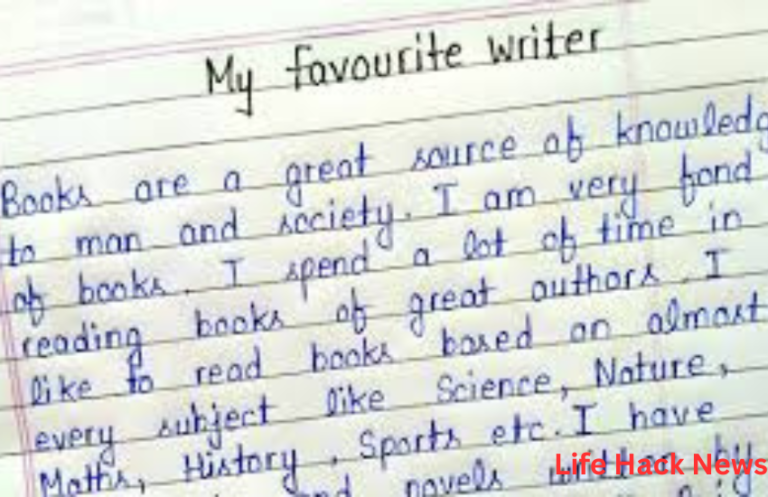 My favourite writer
Books are a great source of knowledg
to man and society. I am very fond
of books. I spend a lot of time in
reading books of great authors. I
like to read books based on almost
every subject like Science, Nature,
Maths, History, Sports etc. I have
novels written by
Life Hack News